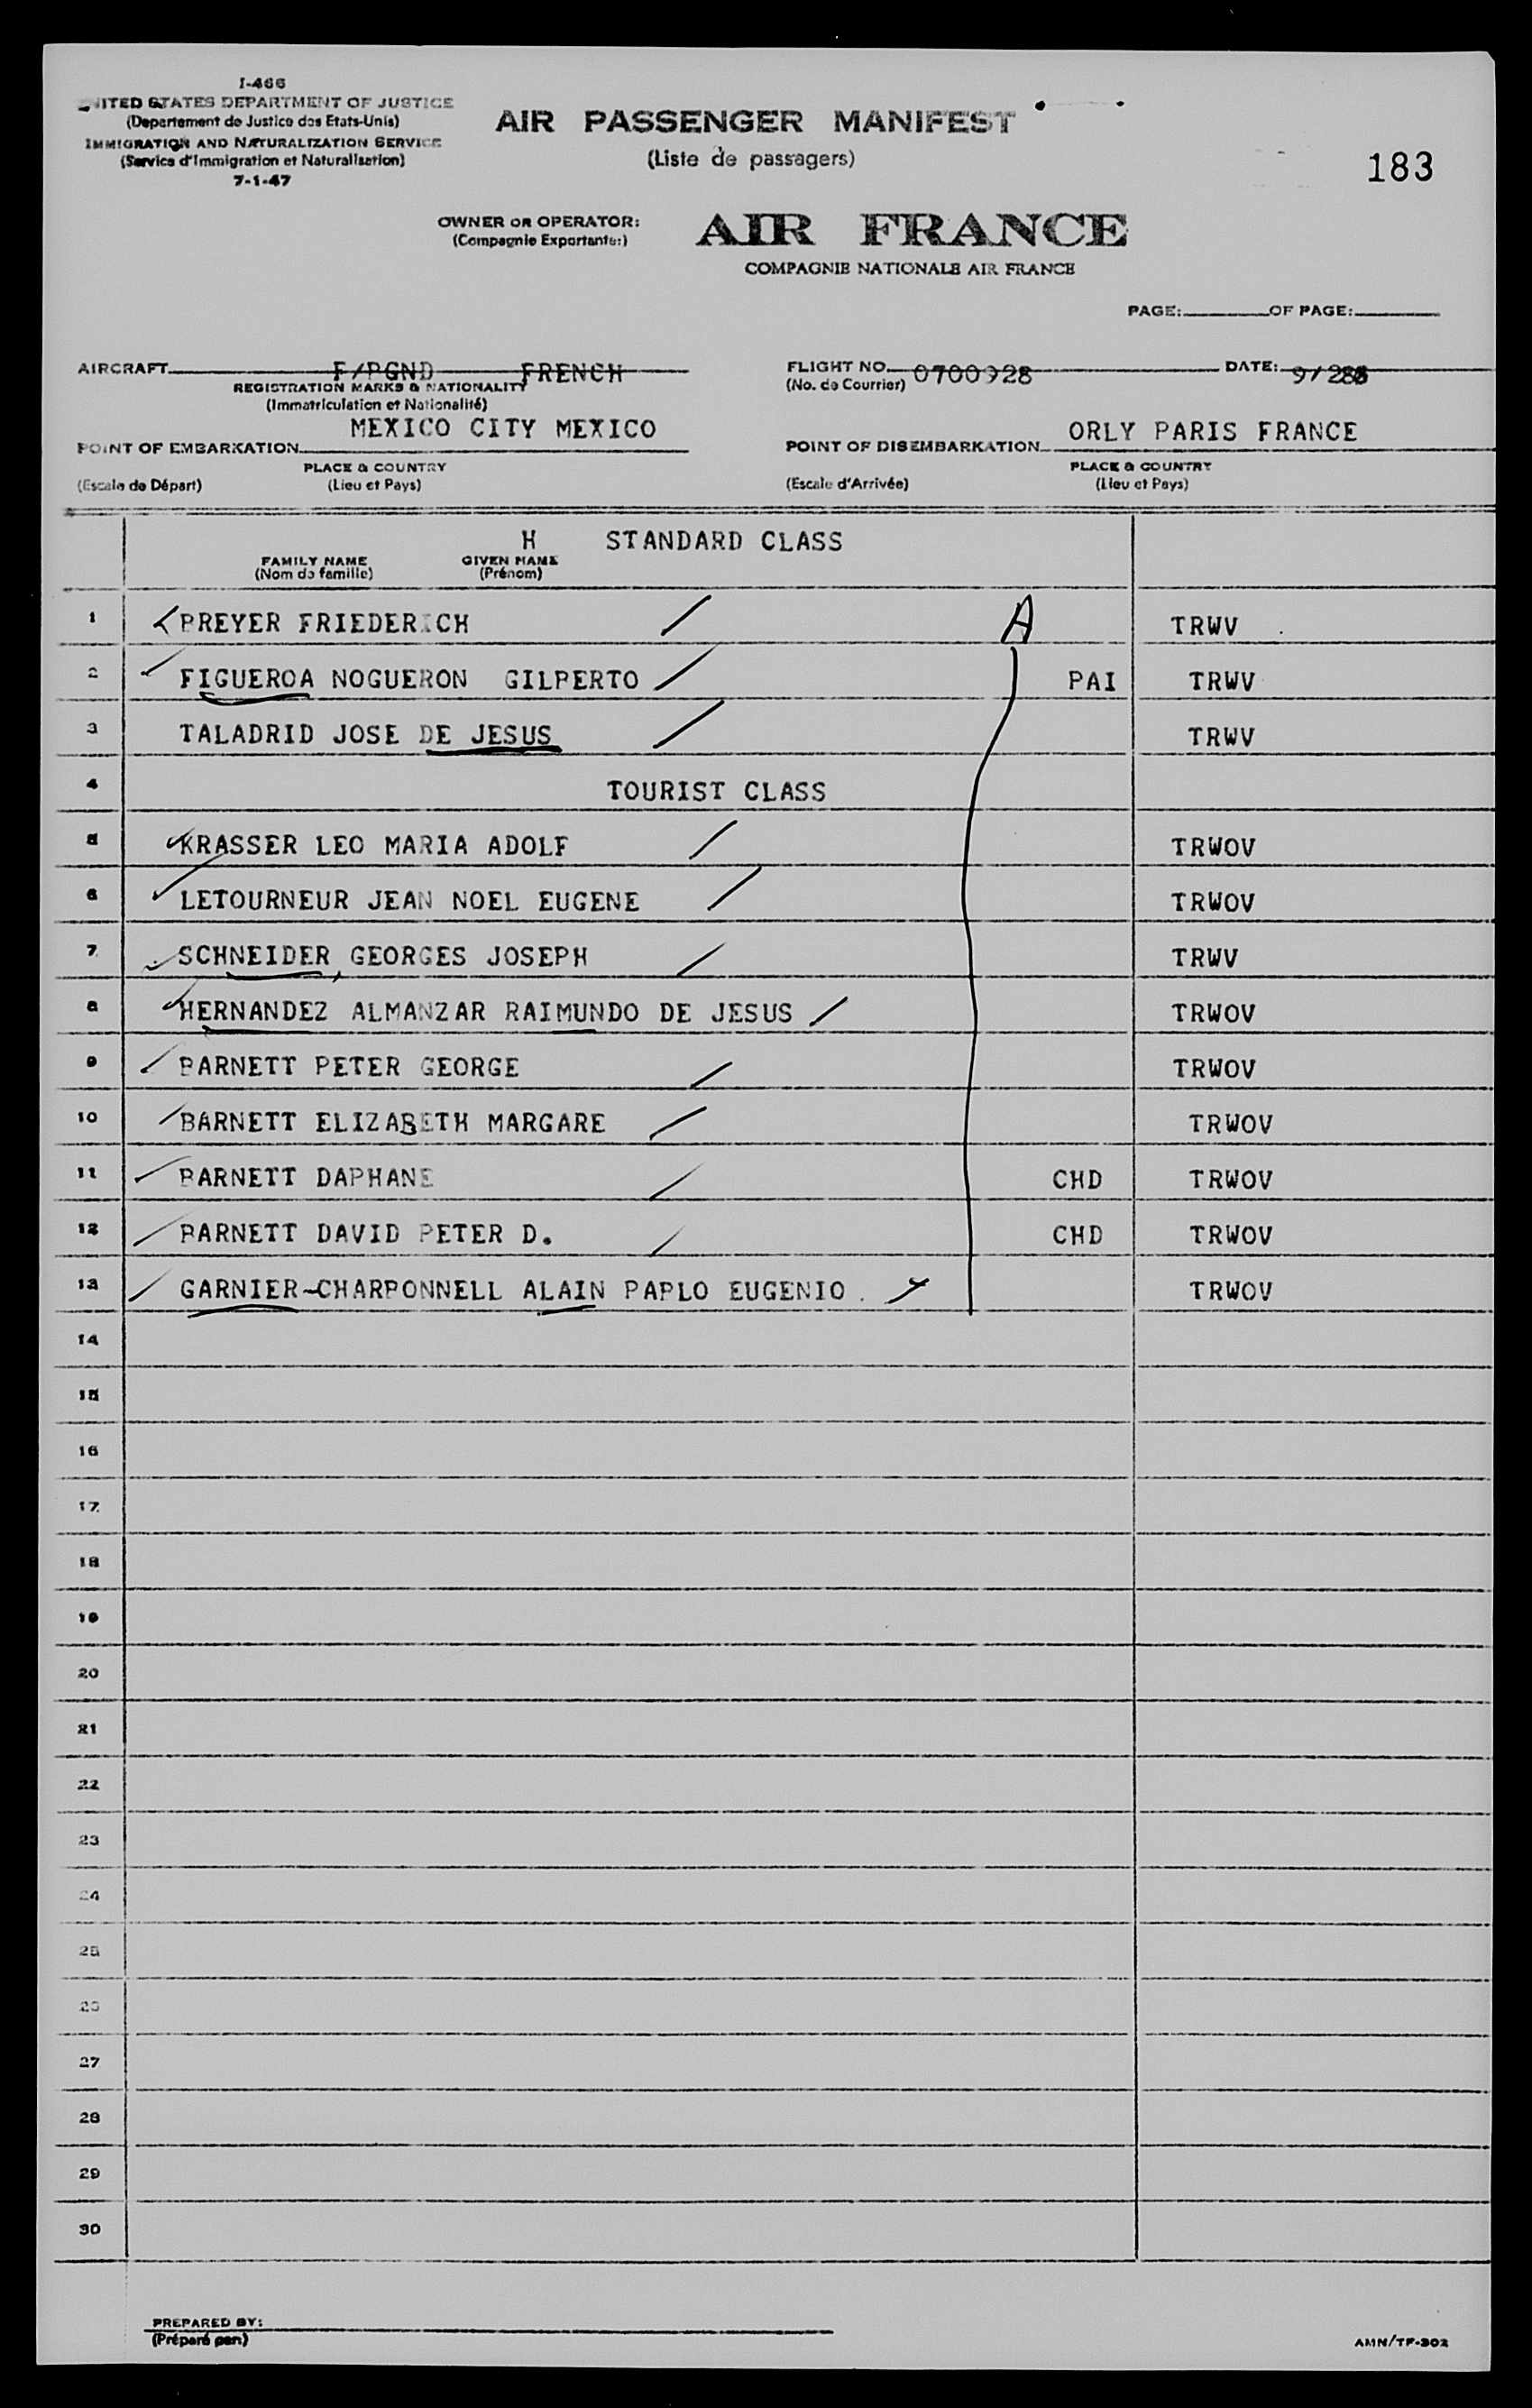 I-466
UNITED STATES DEPARTMENT OF JUSTICE
(Departement de Justice des Etats-Unis)
IMMIGRATION AND NATURALIZATION SERVICE
(Service d'Immigration et Naturalisation)
7-1-47
AIR PASSENGER MANIFEST
(Liste de passagers)
183
OWNER OR OPERATOR: AIR FRANCE
(Compagnie Exportante:)
COMPAGNIE NATIONALE AIR FRANCE
PAGE: OF PAGE:
AIRCRAFT F/PGND FRENCH FLIGHT NO. 0700928 DATE: 9/28
REGISTRATION MARKS & NATIONALITY (No. de Courrier)
(Immatriculation et Nationalité)
POINT OF EMBARKATION MEXICO CITY MEXICO POINT OF DISEMBARKATION ORLY PARIS FRANCE
PLACE & COUNTRY PLACE & COUNTRY
(Escale de Départ) (Lieu et Pays) (Escale d'Arrivée) (Lieu et Pays)
H STANDARD CLASS
FAMILY NAME GIVEN NAME
(Nom de famille) (Prénom)
1 PREYER FRIEDERICH A TRWV
2 FIGUEROA NOGUERON GILPERTO PAI TRWV
3 TALADRID JOSE DE JESUS TRWV
4 TOURIST CLASS
5 KRASSER LEO MARIA ADOLF TRWOV
6 LETOURNEUR JEAN NOEL EUGENE TRWOV
7 SCHNEIDER, GEORGES JOSEPH TRWV
8 HERNANDEZ ALMANZAR RAIMUNDO DE JESUS TRWOV
9 BARNETT PETER GEORGE TRWOV
10 BARNETT ELIZABETH MARGARE TRWOV
11 BARNETT DAPHANE CHD TRWOV
12 BARNETT DAVID PETER D. CHD TRWOV
13 GARNIER-CHARPONNELL ALAIN PAPLO EUGENIO . TRWOV
14
15
16
17
18
19
20
21
22
23
24
25
26
27
28
29
30
PREPARED BY:
(Préparé par)
AMN/TF-302